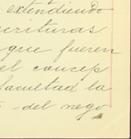 extendiendo
crituras
que fueren
el concep
facultad la
- del nego